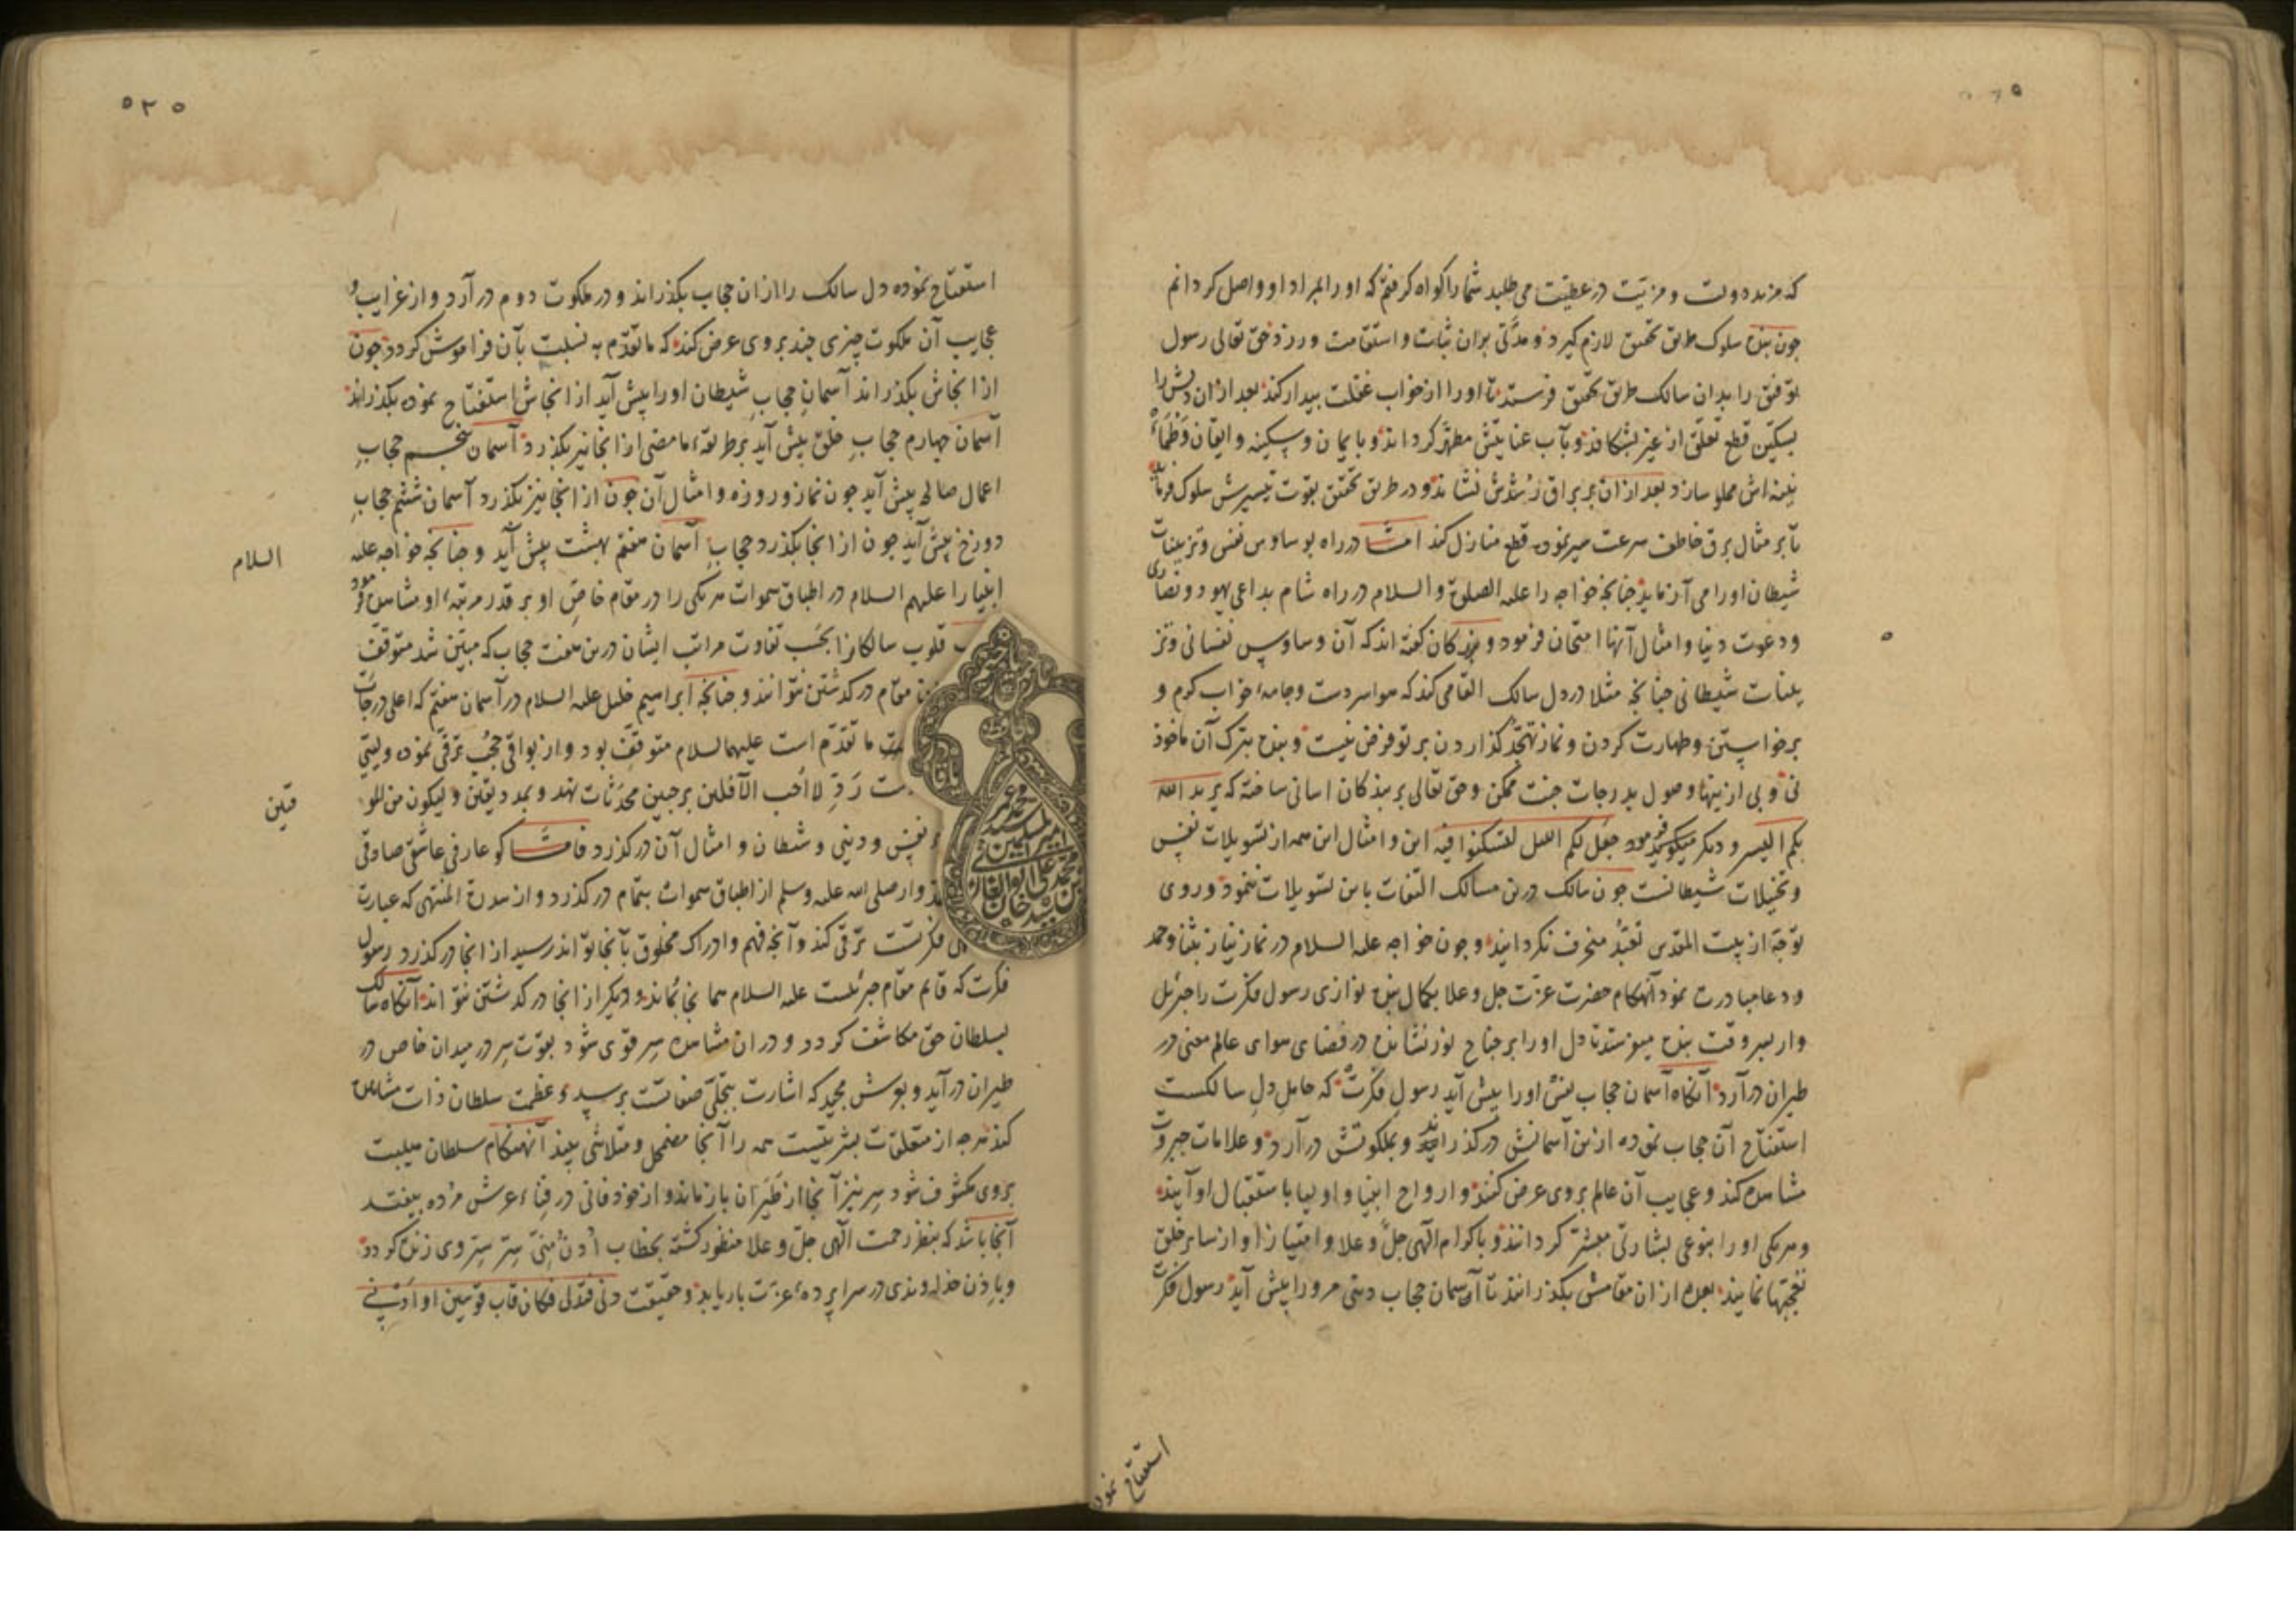 که مزید دولت و مزیت در عطیت می طلبد شما را کواه کرفتم که او را بمراد او واصل کردانم
چون بنده سلوک طریق تحقیق لازم کیرد و مدتی بران ثبات و استقامت ورزد حق تعالی رسول
توفیق را بدان سالک طریق تحقیق فرستد تا او را از خواب غفلت بیدار کند بعد از ان دلش را
بسکین قطع تعلق از غیر بشکافد و بآب عنایتش مطهر کرداند و بایمان و سکینه و ایقان و طمأ
نینه اش مملو سازد بعد از ان بر براق رشدش نشاند و در طریق تحقیق بقوت تیسیرش سلوک فرماید
تا بر مثال برق خاطف سرعت سیر نموده قطع منازل کند اما در راه بوساوس نفس و تزیینات
شیطان او را می آزماید چنانچه خواجه را علیه الصلوة و السلام در راه شام بداعی یهود و نصاری
و دعوت دنیا و امثال آنها امتحان فرمود و بزرکان کفته اند که آن وساوس نفسانی و تز
یینات شیطانی چنانچه مثلا در دل سالک القا می کند که هوا سردست و جامهٔ خواب کرم و
برخواستن و طهارت کردن و نماز تهجد کذاردن بر تو فرض نیست و بنده بترک آن ماخوذ
نی و بی ازینها وصول بدرجات جنت ممکن و حق تعالی بر بندکان اسانی ساخته که یرید الله
بکم الیسر و دیکر میکوید فرموده جعل لکم اللیل لتسکنوا فیه این و امثال این همه از تسویلات نفس
و تخیلات شیطانست چون سالک درین مسالک التفات باین تسویلات ننمود و روی
توجه از بیت المقدس تعبد منحرف نکردانید و چون خواجه علیه السلام در نماز نیاز بثنا و حمد
و دعا مبادرت نمود آنهنکام حضرت عزت جل و علا بکمال بنده نوازی رسول فکرت را جبرئیل
وار بسر وقت بنده میفرستد تا دل او را بر جناح نور نشانده در فضای هوای عالم معنی در
طیران درآرد آنکاه آسمان حجاب نفس او را پیش آید رسول فکرت که حامل دل سالکست
استفتاح آن حجاب نموده ازین آسمانش درکذراند و بملکوتش درآرد و علامات جبروت
مشاهده کند و عجایب آن عالم بروی عرض کنند و ارواح انبیا و اولیا باستقبال او آیند
و هریکی او را بنوعی بشارتی مبشر کردانند و باکرام الهی جل و علا و امتیاز او از سایر خلق
تعجبها نمایند بعده از ان مقامش بکذرانند تا آسمان حجاب دنیی مرورا پیش آید رسول فکرت
استفتاح نموده
۵۲۵
استفتاح نموده دل سالک را ازان حجاب بکذراند و در ملکوت دوم درآرد و از غرایب و
عجایب آن ملکوت چیزی چند بروی عرض کند که ما تقدم به نسبت بآن فراموش کردد چون
از انجاش بکذراند آسمان حجاب شیطان او را پیش آید از انجاش استفتاح نموده بکذراند
آسمان چهارم حجاب خلق پیش آید بر طریقهٔ ما مضی از انجا نیز بکذرد آسمان پنجم حجاب
اعمال صالح پیش آید چون نماز و روزه و امثال آن چون از انجا نیز بکذرد آسمان ششم حجاب
دوزخ پیش آید چون از انجا بکذرد حجاب آسمان هفتم بهشت پیش آید و چنانچه خواجه علیه
السلام
انبیا را علیهم السلام در اطباق سموات هریکی را در مقام خاص او بر قدر مرتبهٔ او مشاهده فرمود
قلوب سالکانرا بحسب تفاوت مراتب ایشان درین هفت حجاب که مبین شد متوقف
مقام درکذشتن نتوانند و چنانچه ابراهیم خلیل علیه السلام در آسمان هفتم که اعلی درجات
ما تقدم است علیهما السلام متوقف بود و از بواقی حجب ترقی نموده
رد لا احب الآفلین بر جبین محدثات نهد و بمدد یقین و لیکون من المو
قنین
نفس و دینی و شیطان و امثال آن درکذرد فاما کو عارفی عاشق صادقی
وار صلی الله علیه و سلم از اطباق سموات بتمام درکذرد و از سدرة المنتهی که عبارت
فکرتست ترقی کند و آنچه فهم و ادراک مخلوق بآنجا تواند رسید از انجا درکذرد رسول
فکرت که قایم مقام جبرئیلست علیه السلام هما نجا بماند و دیکر از انجا درکذشتن نتواند آنکاه سالک
بسلطان حق مکاشف کردد و در ان مشاهده سر قوی شود بقوت سر در میدان خاص در
طیران درآید و بعرش مجید که اشارت بتجلی صفاتست برسد و عظمت سلطان ذات مشاهده
کند هرچه از متعلقات بشریتیست همه را آنجا مضمحل و متلاشی بیند آنهنکام سلطان هیبت
بروی مکشوف شود سر نیز آنجا از طیران بازماند و از خود فانی در فناء عرش مرده بیفتد
آنجا باشد که بنظر رحمت الهی جل و علا منظور کشته بخطاب ادن منی سر سر وی زنده کردد
و باذن خداوندی در سراپردهٔ عزت باریابد و حقیقت دنی فتدلی فکان قاب قوسین او ادنی